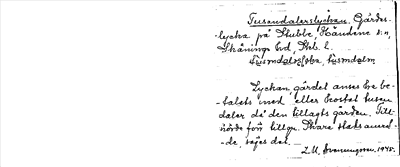 Tusendalerslyckan. Gärdes-
lycka på Stubbe, Händene sn,
Skånings hd, Skb. l.
tusndalesləka, tusndalm
Lyckan, gärdet anses ha be-
talats med, eller kostat tusen
daler då den tillagts gården. Till-
hörde förr
de, säges det.
L.U. Svenungsson. 1945.